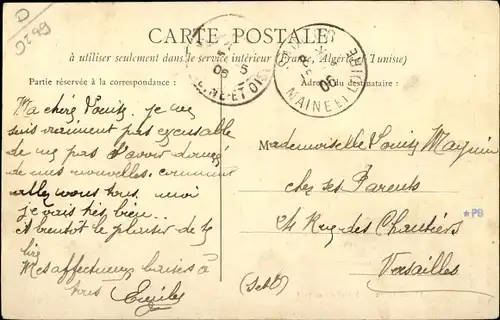 D
0299
CARTE POSTALE
à utiliser seulement dans le service intérieur (France, Algérie et Tunisie)
Partie réservée à la correspondance :
Adresse du destinataire :
06
MAINE ET
06
Ma chère Louise. je
suis vraiment pas excusable
de ne pas t'avoir donné
de mes nouvelles. comment
allez vous tous, moi
je vais très bien..
A bientôt le plaisir de te
lire
Mes affectueux baisers à
tous
Mademoiselle Louise
chez ses Parents
24 Rue des Chantiers
Versailles
(Set O)
*PB